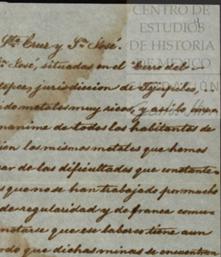 CENTRO DE
ESTUDIOS
DE HISTORIA
DE MEXICO
Sta. Cruz y Sn. José.
Sn. José, situadas en el Cerro del
jurisdiccion de
metales muy ricos, y
unanime de todos los habitantes de
los mismos metales que hemos
de las dificultades que
que no se han trabajado por mucho
de regularidad y de franca comu
notarse que esa labores tiene aun
do que dichas minas se encuentran